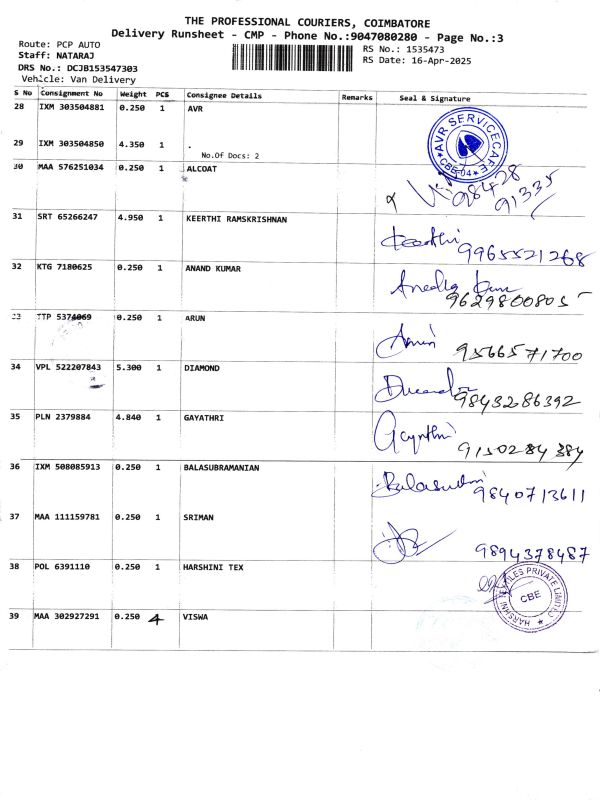 THE PROFESSIONAL COURIERS, COIMBATORE
Delivery Runsheet - CMP - Phone No.:9047080280 - Page No.:3
Route: PCP AUTO
Staff: NATARAJ
DRS No.: DCJB153547303
Vehicle: Van Delivery
RS No.: 1535473
RS Date: 16-Apr-2025
S No Consignment No Weight PCS Consignee Details Remarks Seal & Signature
28 IXM 303504881 0.250 1 AVR
29 IXM 303504850 4.350 1 .
No.Of Docs: 2
AVR SERVICECAFE
CBE-04
30 MAA 576251034 0.250 1 ALCOAT
98428
91335
31 SRT 65266247 4.950 1 KEERTHI RAMSKRISHNAN
Keerthi
9965521268
32 KTG 7180625 0.250 1 ANAND KUMAR
9629800805
33 TTP 5374069 0.250 1 ARUN
Arun
9566571700
34 VPL 522207843 5.300 1 DIAMOND
9843286392
35 PLN 2379884 4.840 1 GAYATHRI
Gaythri
9150284384
36 IXM 508085913 0.250 1 BALASUBRAMANIAN
9840713611
37 MAA 111159781 0.250 1 SRIMAN
9894378487
38 POL 6391110 0.250 1 HARSHINI TEX
HARSHNI TEXTILES PRIVATE LIMITED
CBE
39 MAA 302927291 0.250 4 VISWA